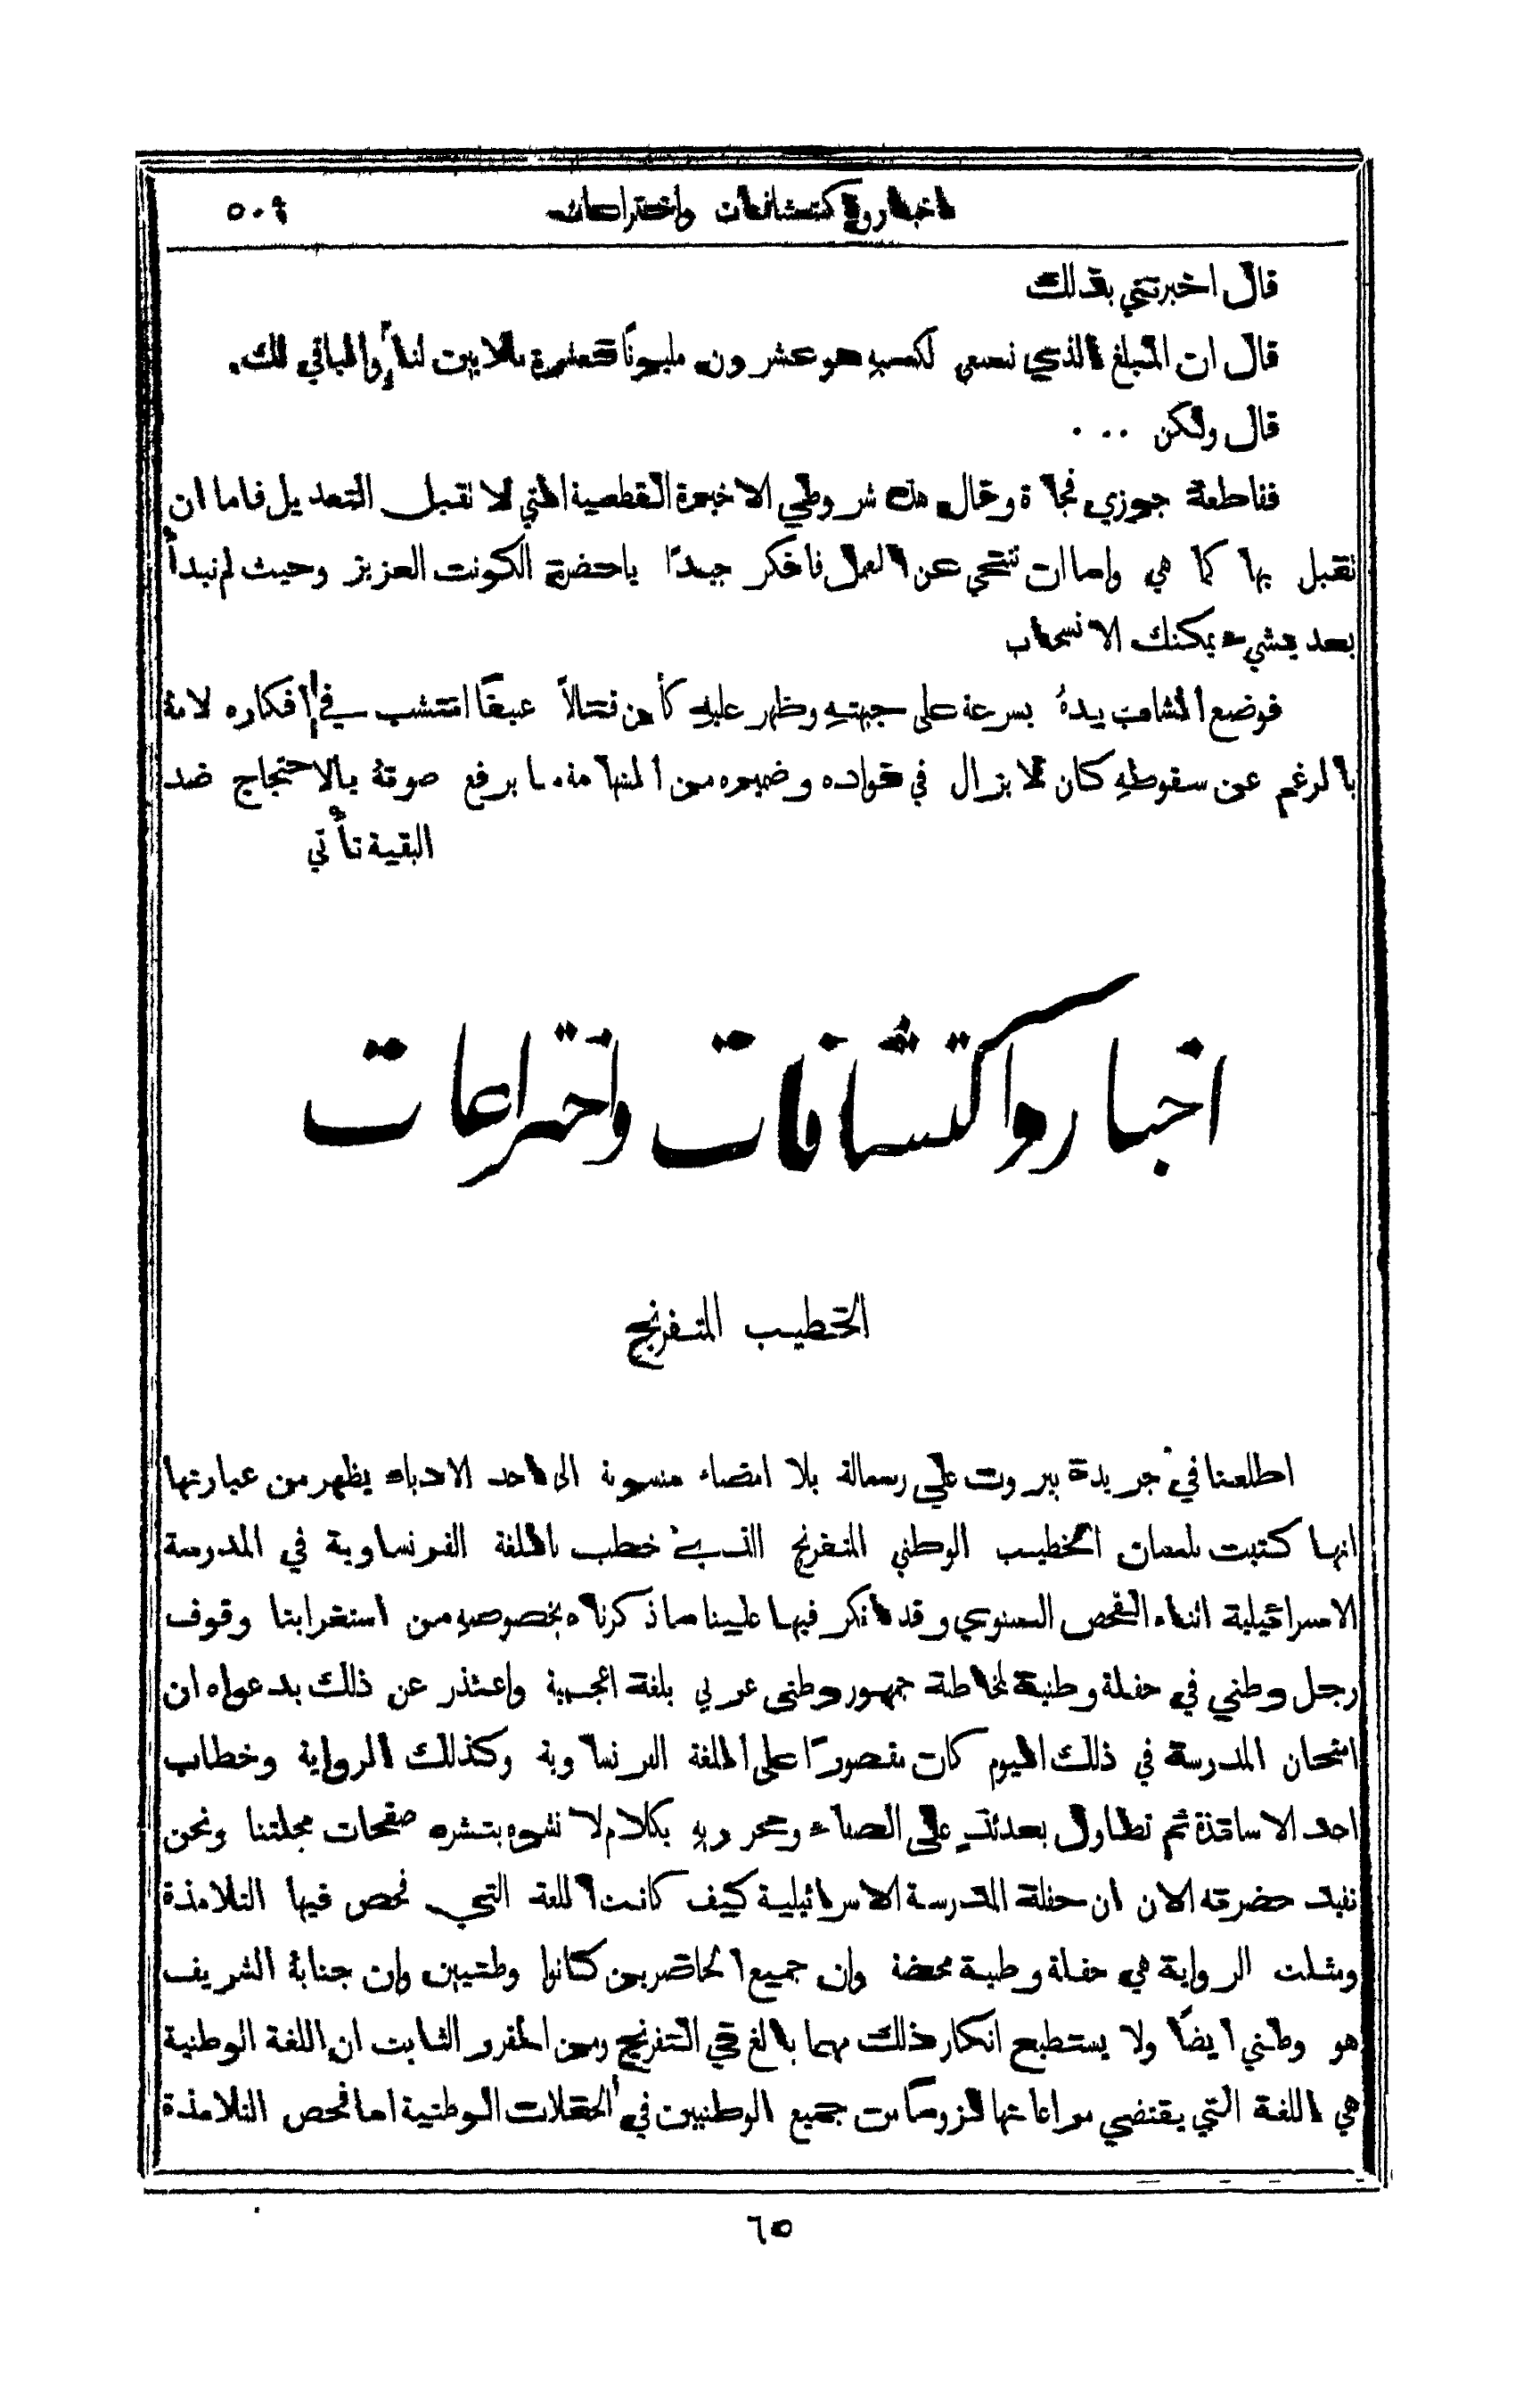 اخبار واكتشافات واختراعات ٥٠٩
قال اخبرتني بذلك
قال ان المبلغ الذي نسعى لكسبه هو عشرون مليونًا فعشرة ملايين لنا والباقي لك.
قال ولكن ...
فقاطعهُ جوزي فجاة وقال هذه شروطي الاخيرة القطعية التي لا تقبل التعديل فاما ان
تقبل بها كما هي واما ان تتنحى عن العمل فافكر جيدًا ياحضرة الكونت العزيز وحيث لم نبدأ
بعد بشيء يمكنك الانسحاب
فوضع الشاب يدهُ بسرعة على جبهته وظهر عليه كأن قتالاً عنيفًا انتشب في افكاره لانهُ
بالرغم عن سقوطه كان لا يزال في فواده وضميره من الشهامة ما يرفع صوتهُ بالاحتجاج ضد
البقية تأتي
اخبار واكتشافات واختراعات
الخطيب المتفرنج
اطلعنا في جريدة بيروت على رسالة بلا امضاء منسوبة الى احد الادباء يظهر من عبارتها
انها كتبت بلسان الخطيب الوطني المتفرنج الذي خطب باللغة الفرنساوية في المدرسة
الاسرائيلية اثناء الفحص السنوي وقد انكر فيها علينا ما ذكرناه بخصوصه من استغرابنا وقوف
رجل وطني في حفلة وطنية لمخاطبة جمهور وطني عربي بلغة اعجمية واعتذر عن ذلك بدعواه ان
امتحان المدرسة في ذلك اليوم كان مقصورًا على اللغة الفرنساوية وكذلك الرواية وخطاب
احد الاساتذة ثم تطاول بعدئذٍ على الصفاء ومحرريه بكلام لا نشوه بنشره صفحات مجلتنا ونحن
نفيد حضرته الان ان حفلة المدرسة الاسرائيلية كيف كانت اللغة التي فحص فيها التلامذة
ومثلت الرواية هي حفلة وطنية محضة وان جميع الحاضرين كانوا وطنيين وان جنابهُ الشريف
هو وطني ايضًا ولا يستطيع انكار ذلك مهما بالغ في التفرنج ومن المقرر الثابت ان اللغة الوطنية
هي اللغة التي يقتضي مراعاتها لزومًا من جميع الوطنيين في الحفلات الوطنية اما فحص التلامذة
٦٥